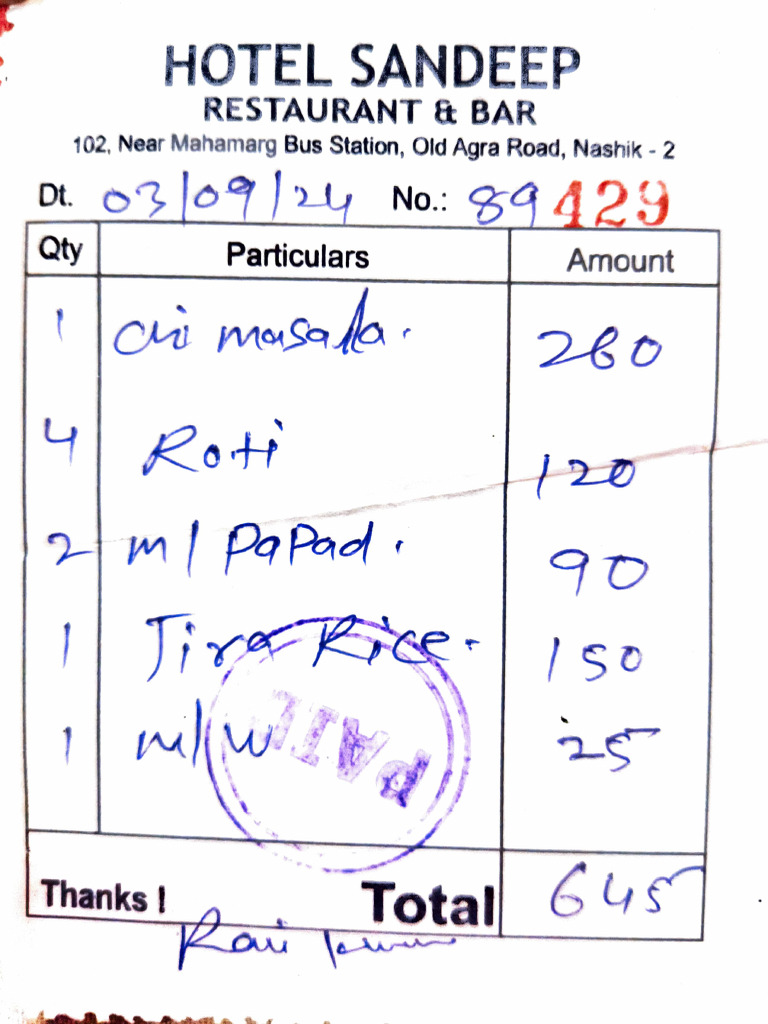 HOTEL SANDEEP
RESTAURANT & BAR
102, Near Mahamarg Bus Station, Old Agra Road, Nashik - 2
Dt. 03/09/24 No.: 89 429
Qty Particulars Amount
1 chi masala. 260
4 Roti 120
2 m/ PaPad. 90
1 Jira Rice. 150
1 m/w 25
PAID
Thanks ! Total 645